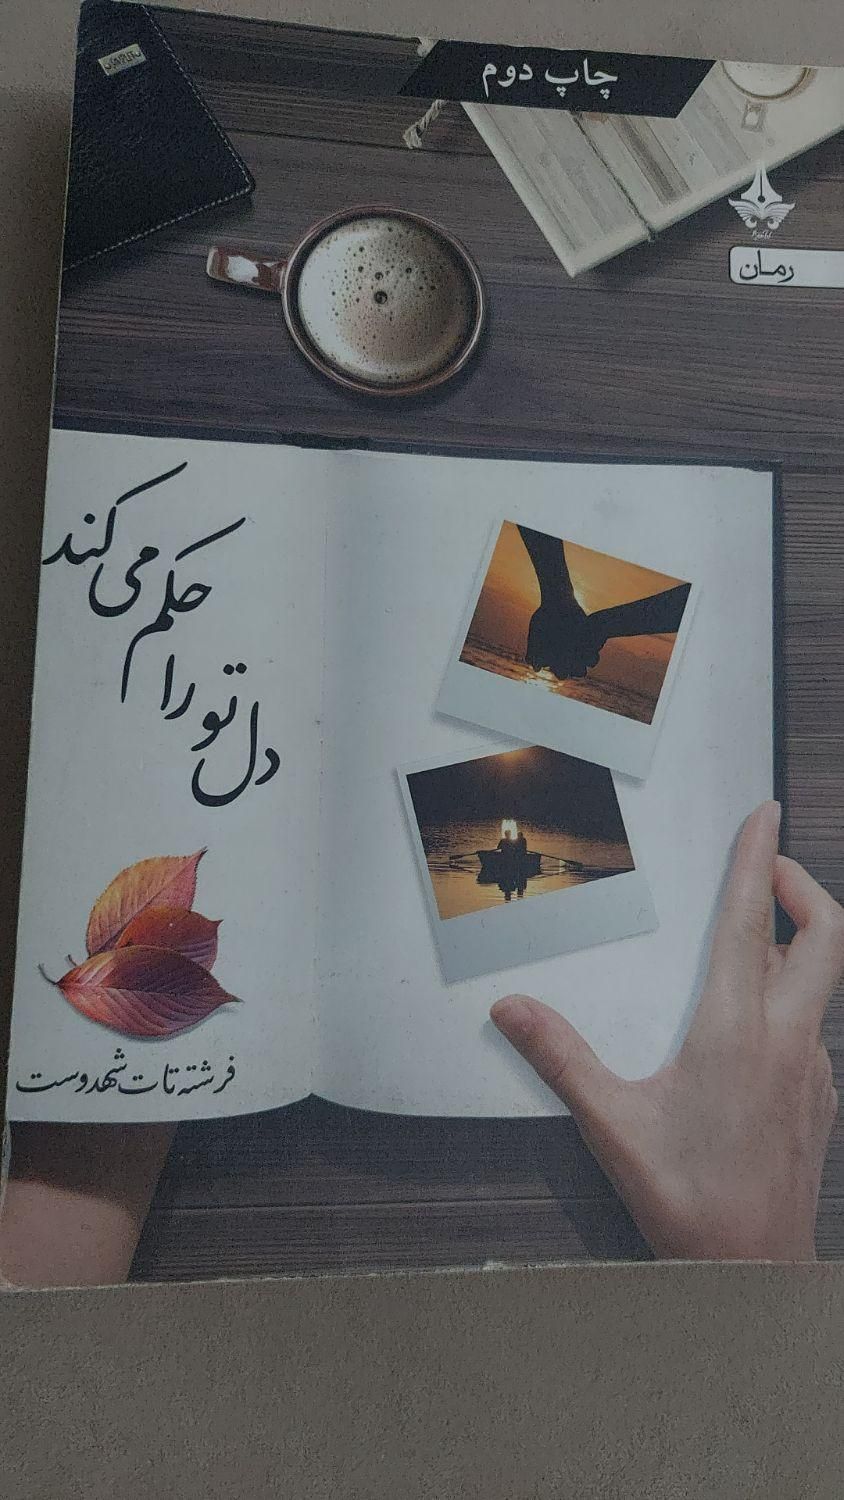 چاپ دوم
رمان
دل تو را حکم می‌کند
فرشته تات شهدوست